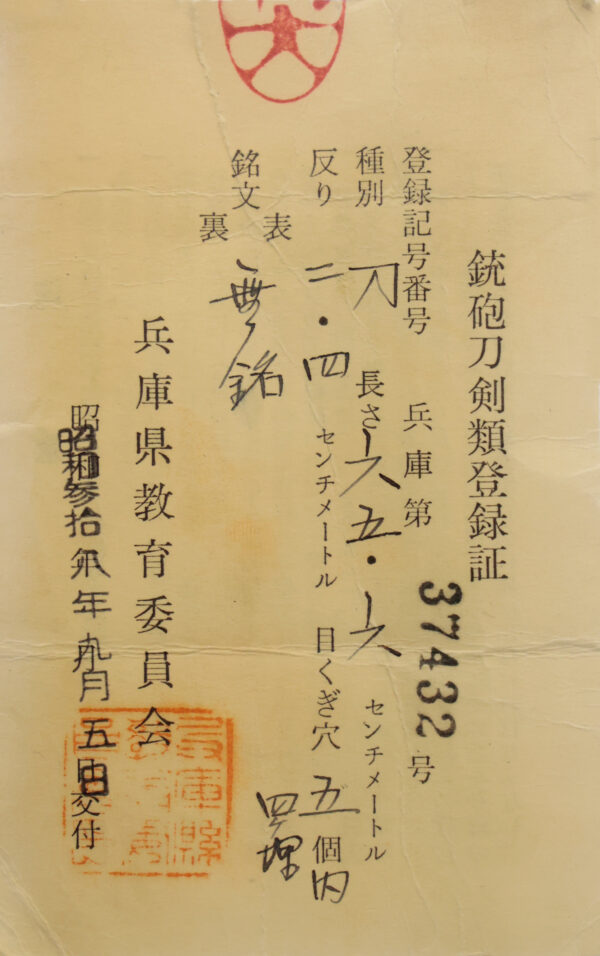 銃砲刀剣類登録証
登録記号番号 兵庫第 37432 号
種別 刀 長さ 六五・六 センチメートル
反り 二・四 センチメートル 目くぎ穴 五個内四埋
銘文 表 無銘
裏
兵庫県教育委員会
昭和参拾年九月五日交付